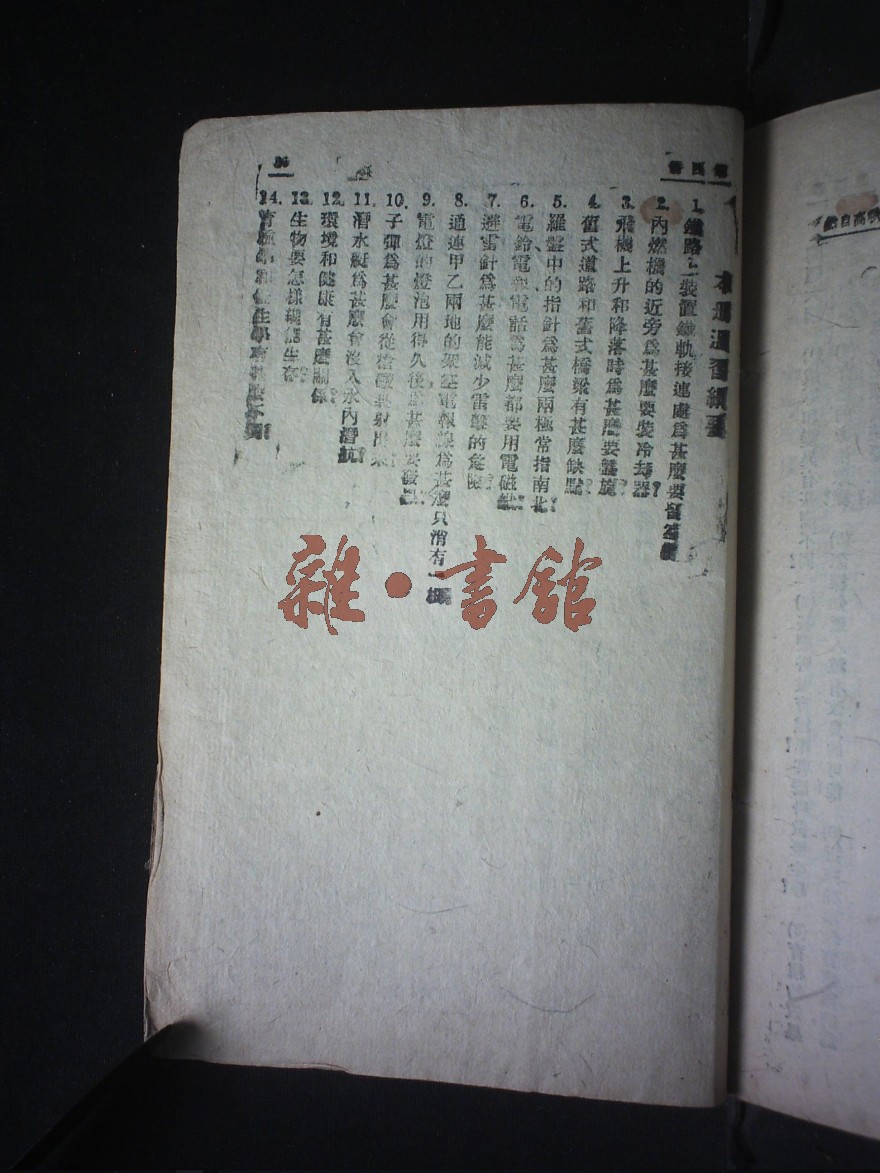 第四冊
1. 鐵路上裝置鐵軌接連處爲甚麼要留空隙
2. 內燃機的近旁爲甚麼要裝冷却器？
3. 飛機上升和降落時爲甚麼要盤旋？
4. 舊式道路和舊式橋梁有甚麼缺點？
5. 羅盤中的指針爲甚麼兩極常指南北？
6. 電鈴電報電話爲甚麼都要用電磁
7. 避雷針爲甚麼能減少雷擊的危險？
8. 通連甲乙兩地的架空電報線爲甚麼只消有一根
9. 電燈的燈泡用得久後爲甚麼要發
10. 子彈爲甚麼會從槍 射出來
11. 潛水艇爲甚麼會沒入水內潛航？
12. 環境和健康有甚麼關係？
13. 生物要怎樣纔能生存？
14. 學和 生學有
雜·書館